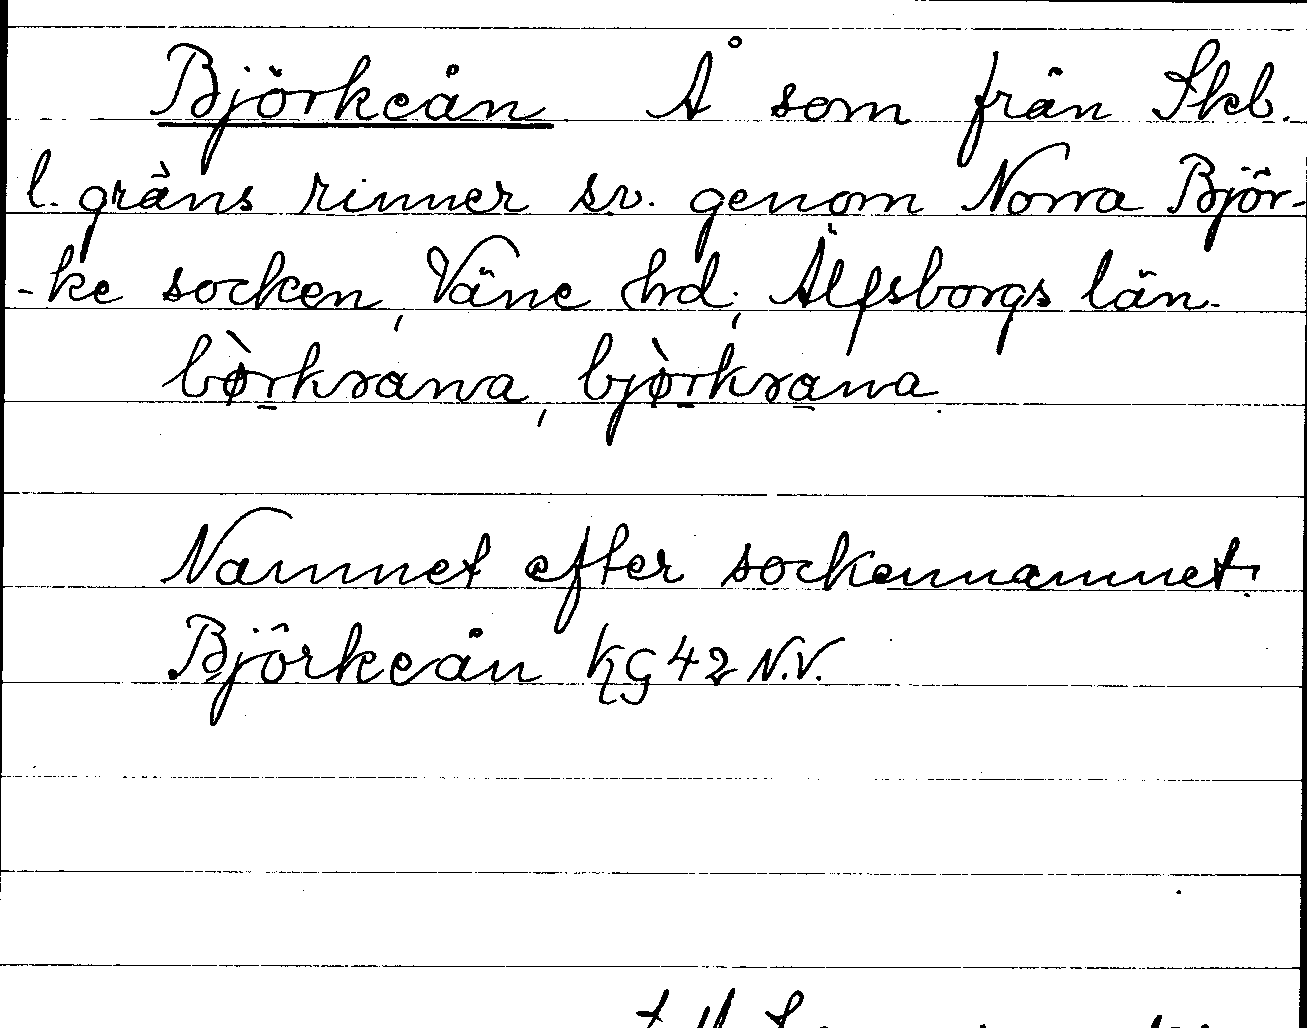 Björkeån Å som från Skb.
l. gräns rinner sv. genom Norra Björ-
-ke socken, Väne hd, Älfsborgs län.
bø̀rkrana, bjø̀rkrana.
Namnet efter sockennamnet.
Björkeån KG 42 N.V.